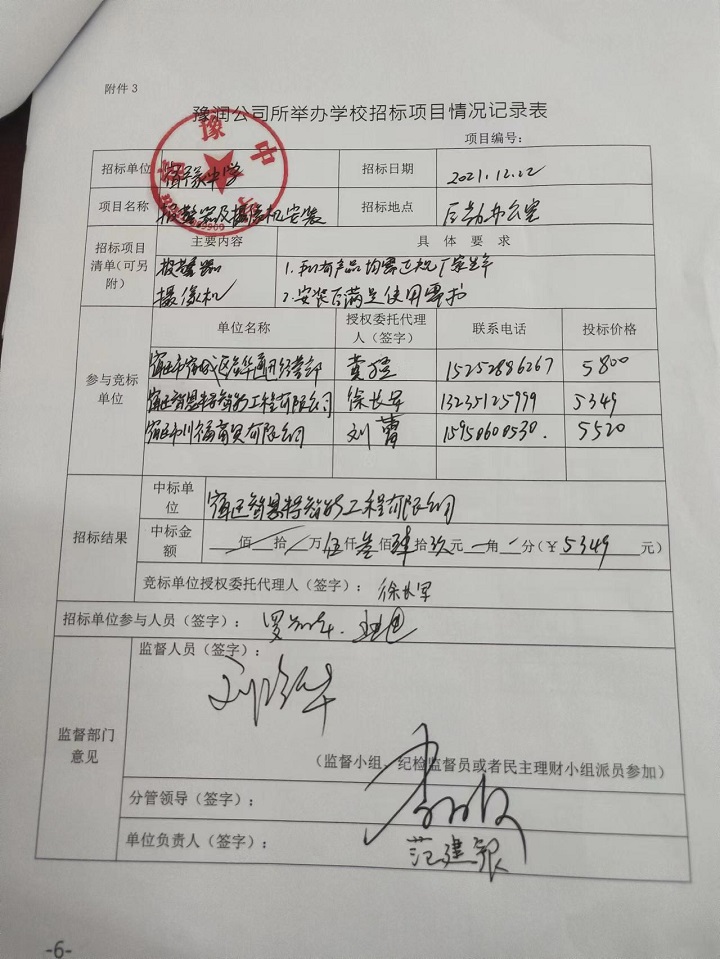 附件 3
豫润公司所举办学校招标项目情况记录表
项目编号：
招标单位 宿豫中学 招标日期 2021.12.22
项目名称 报警器及摄像机安装 招标地点 后勤办公室
招标项目清单(可另附) 主要内容 具 体 要 求
报警器 1.所有产品均需正规厂家生产
摄像机 2.安装后满足使用需求
参与竞标单位 单位名称 授权委托代理人（签字） 联系电话 投标价格
15252886267 5800
徐长军 13235125999 5349
宿迁市川福商贸有限公司 刘蕾 15950600530. 5520
招标结果 中标单位 工程有限公司
中标金额 佰 拾 万 伍仟叁佰肆拾玖元 角 分（¥5349 元）
竞标单位授权委托代理人（签字）： 徐长军
招标单位参与人员（签字）：
监督部门意见 监督人员（签字）：
（监督小组、纪检监督员或者民主理财小组派员参加）
分管领导（签字）：
单位负责人（签字）： 范建银
-6-